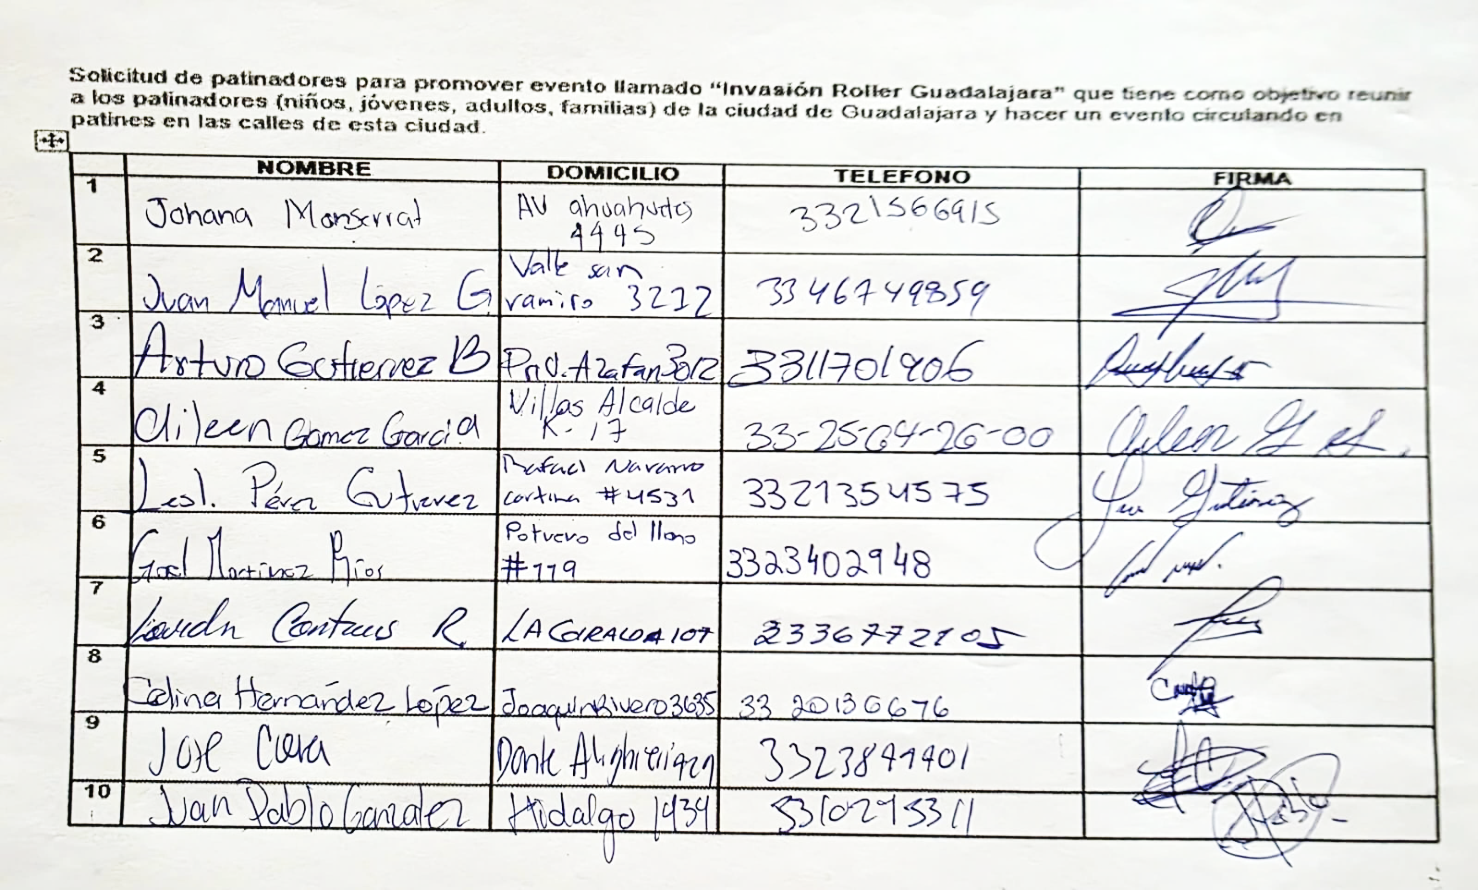 Solicitud de patinadores para promover evento llamado “Invasión Roller Guadalajara” que tiene como objetivo reunir
a los patinadores (niños, jóvenes, adultos, familias) de la ciudad de Guadalajara y hacer un evento circulando en
patines en las calles de esta ciudad.
NOMBRE DOMICILIO TELEFONO FIRMA
1 Johana Monserrat AV ahuahuetes 4445 3321566915
2 Juan Manuel López G. Valle san ramiro 3212 3346749859
3 Arturo Gutierrez B Priv. Azafran 3012 3311701906
4 Aileen Gómez García Villas Alcalde K-17 33-25-64-26-00
5 Lesl. Pérez Gutierrez Rafael Navarro cortina #4531 3321354575
6 Gael Martinez Rios Potrero del llano #119 3323402948
7 R. LA GIRALDA 107 3336772105
8 Celina Hernández López Joaquin Rivero 3635 33 20136676
9 Jose Cueva Dante Alighieri 3323844401
10 Juan Pablo Gonzalez Hidalgo 1434 3310295311